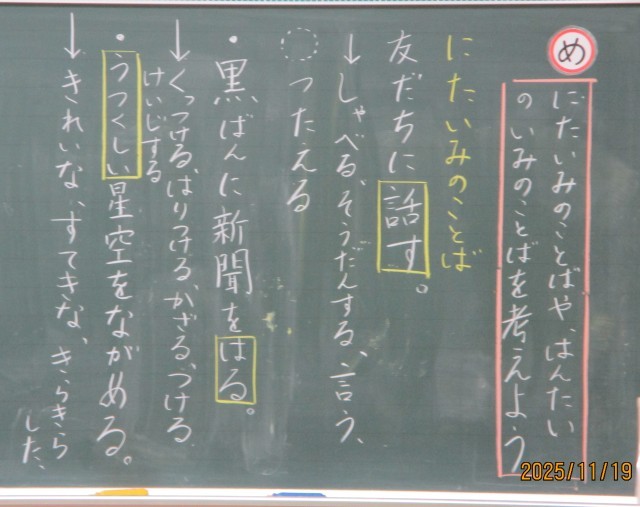 め
にたいみのことばや、はんたい
のいみのことばを考えよう
にたいみのことば
友だちに話す。
→しゃべる、そうだんする、言う、
つたえる
・黒ばんに新聞をはる。
→くっつける、はりつける、かざる、つける
けいじする
・うつくしい星空をながめる。
→きれいな、すてきな、きらきら
した、
2025/11/19